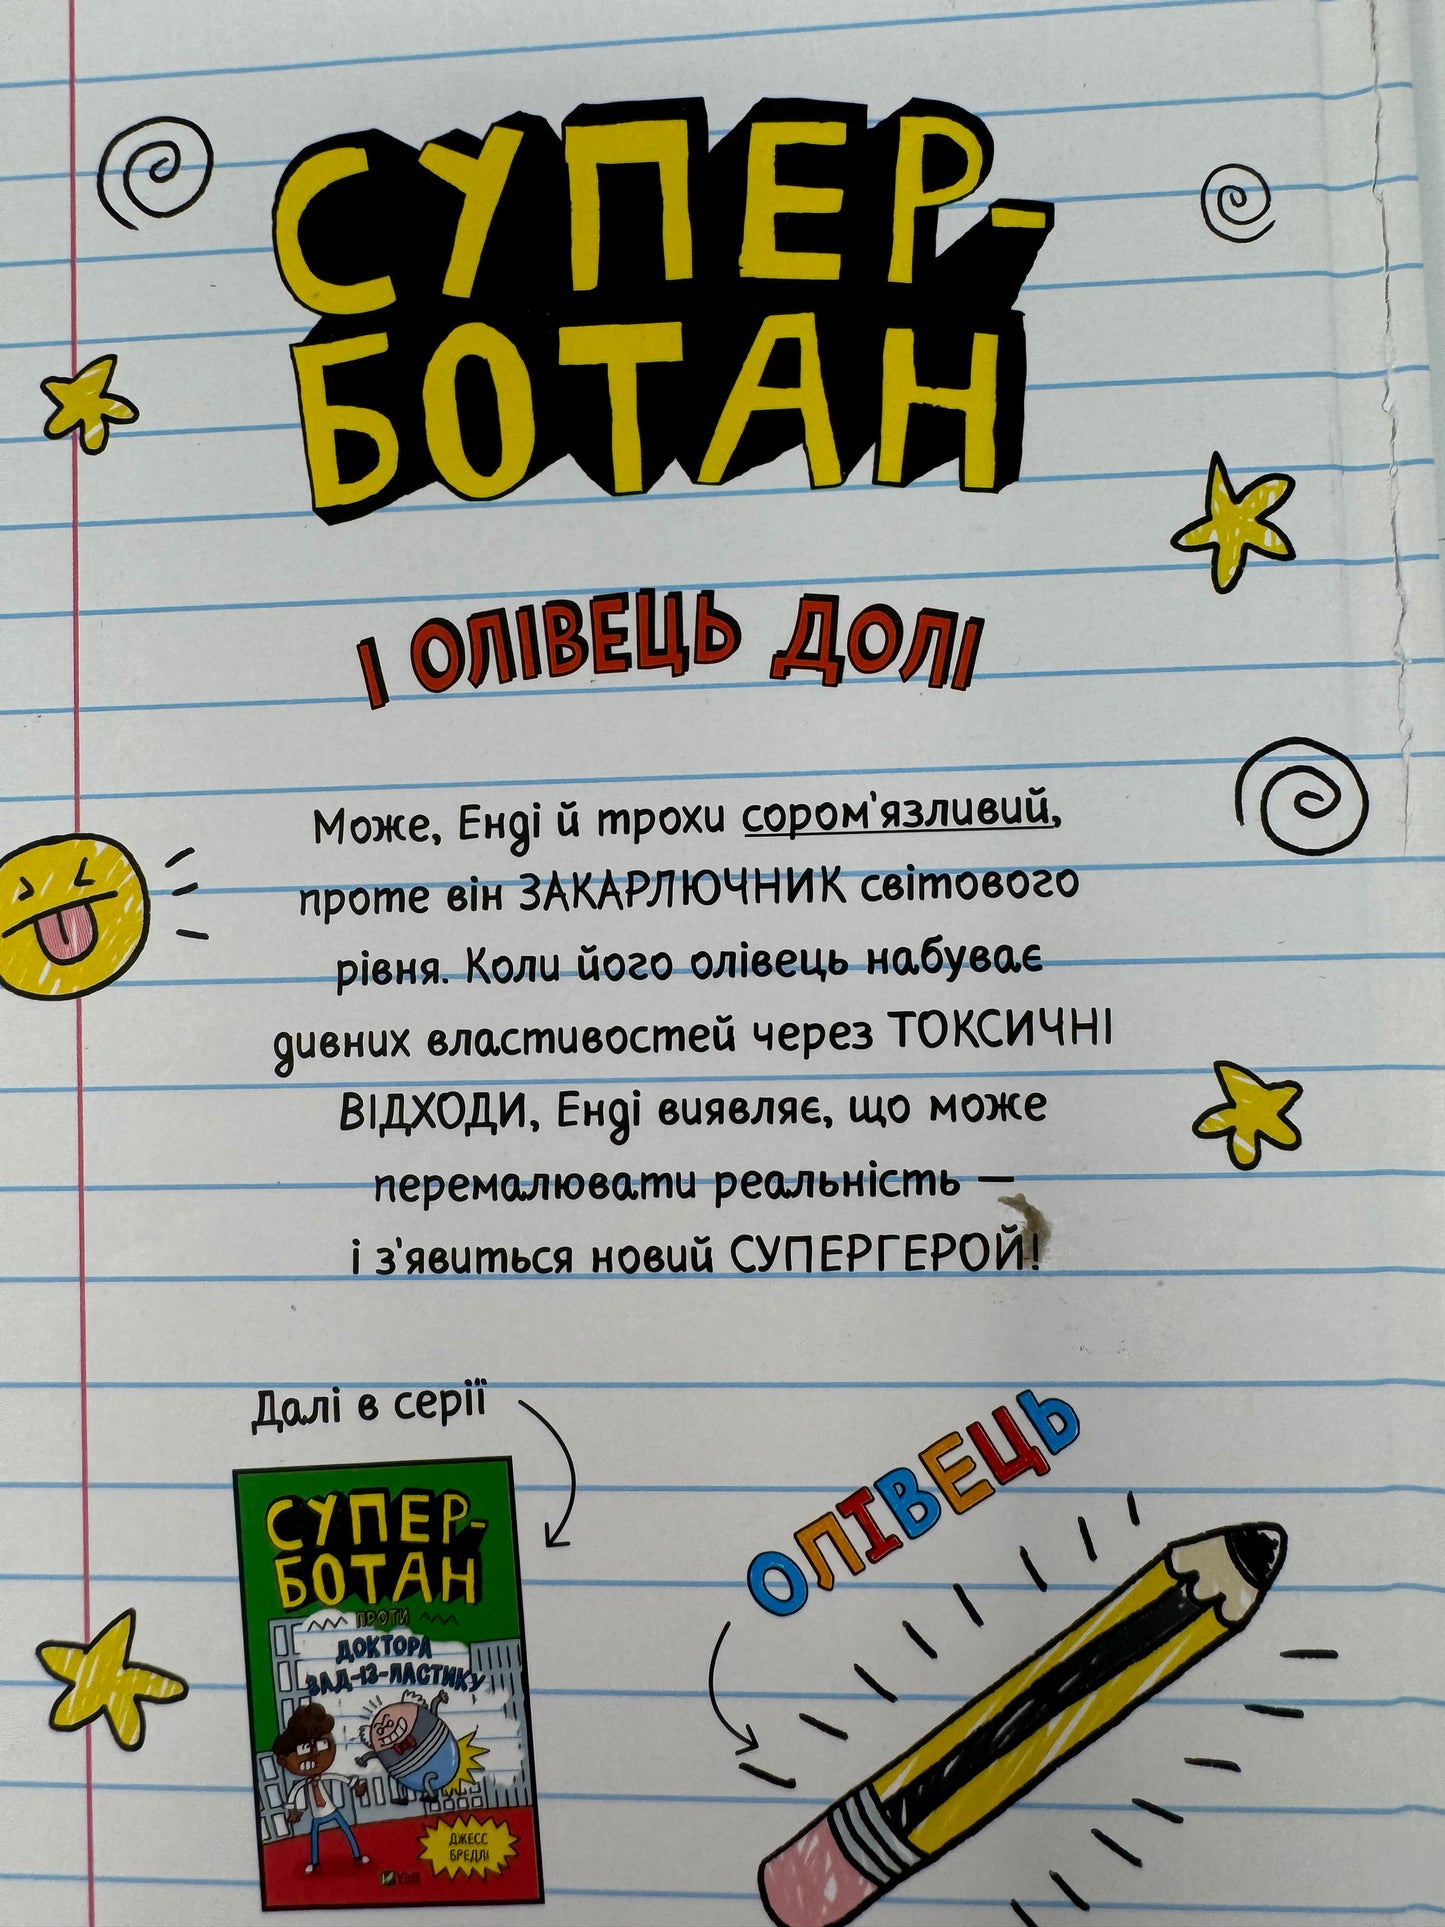 СУПЕР-
БОТАН
І ОЛІВЕЦЬ ДОЛІ
Може, Енді й трохи сором'язливий,
проте він ЗАКАРЛЮЧНИК світового
рівня. Коли його олівець набуває
дивних властивостей через ТОКСИЧНІ
ВІДХОДИ, Енді виявляє, що може
перемалювати реальність —
і з'явиться новий СУПЕРГЕРОЙ!
Далі в серії
СУПЕР-
БОТАН
ПРОТИ
ДОКТОРА
ЗАД-ІЗ-ЛАСТИКУ
ДЖЕСС
БРЕДЛІ
ОЛІВЕЦЬ